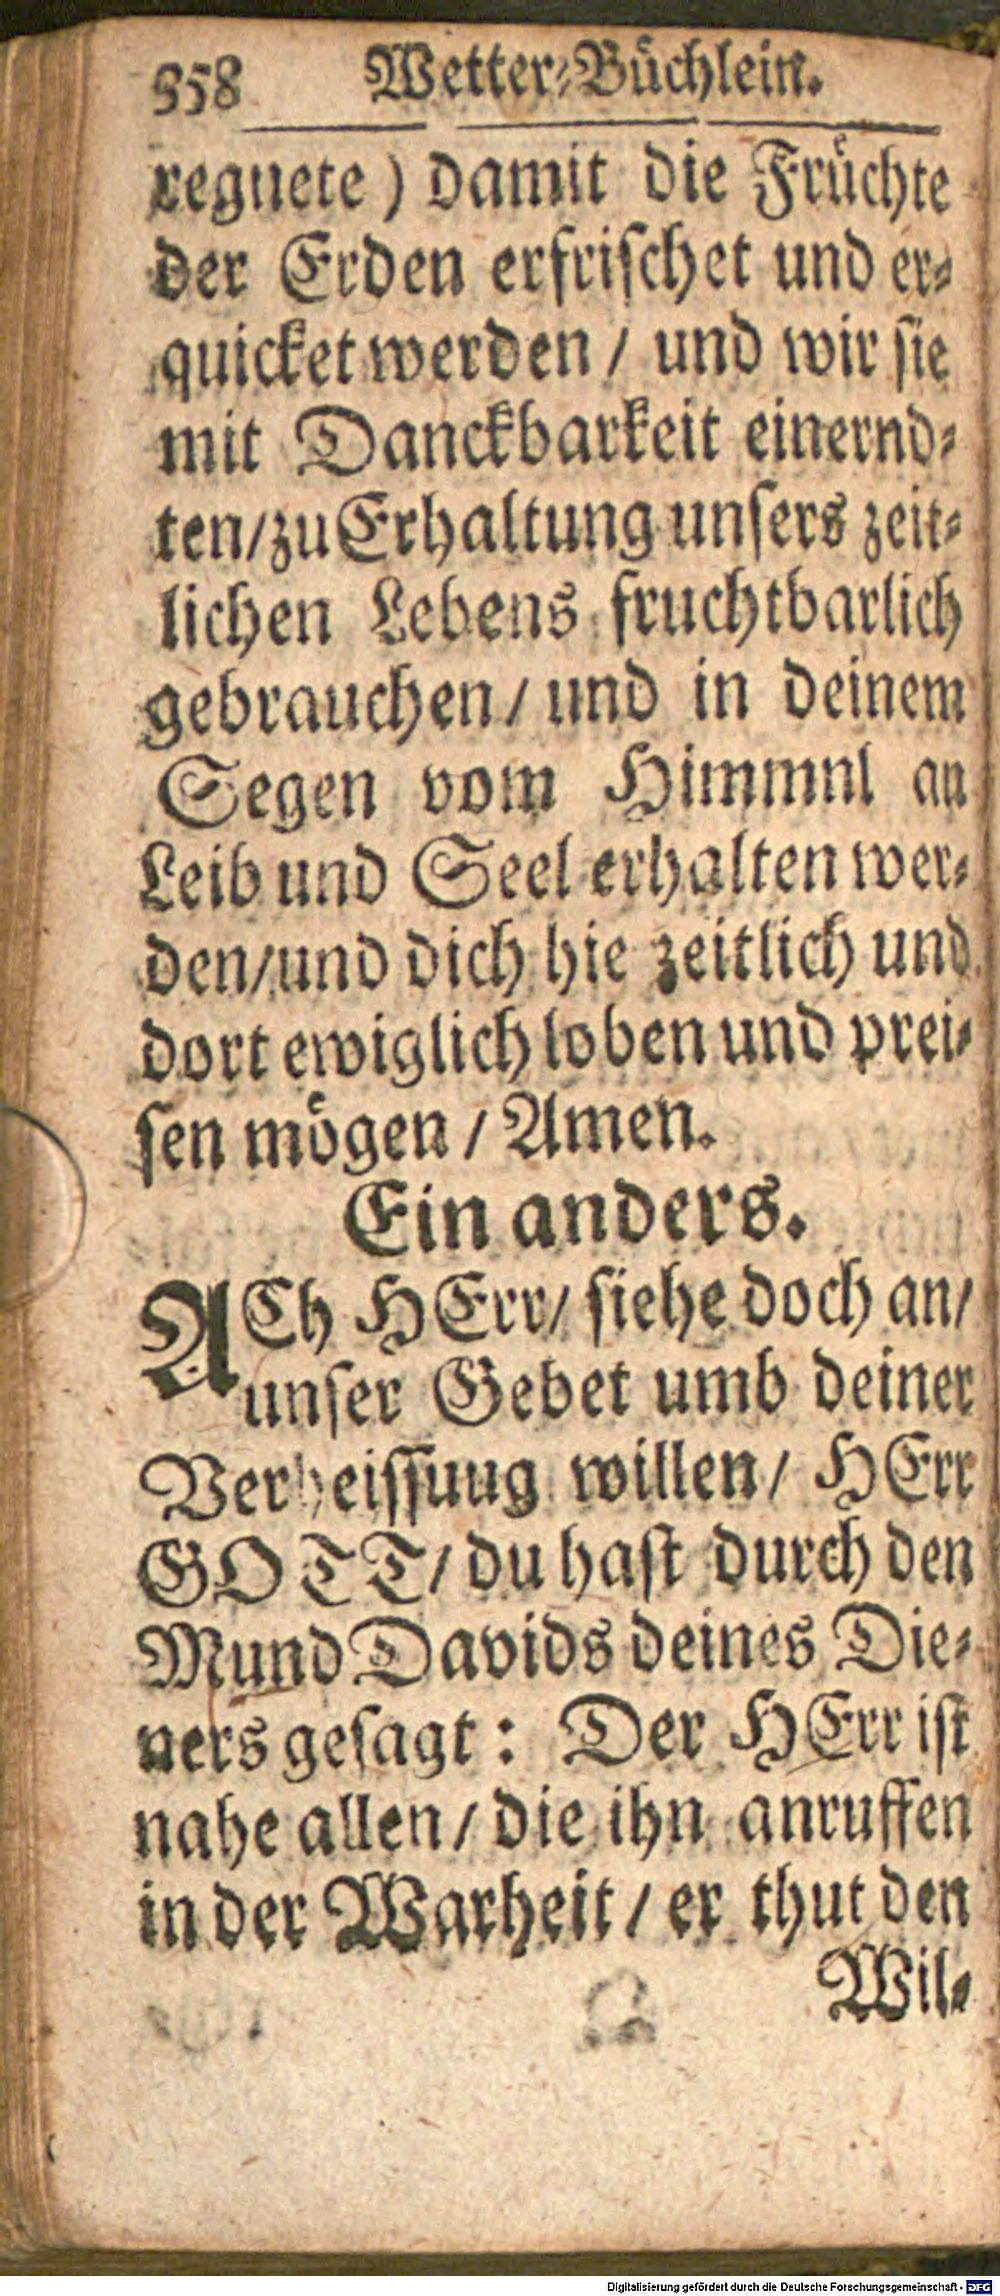 358 Wetter-Büchlein.
regnete) damit die Früchte
der Erden erfrischet und er-
quicket werden / und wir sie
mit Danckbarkeit einernd-
ten/zu Erhaltung unsers zeit-
lichen Lebens fruchtbarlich
gebrauchen / und in deinem
Segen vom Himmnl an
Leib und Seel erhalten wer-
den/und dich hie zeitlich und
dort ewiglich loben und prei-
sen mögen / Amen.
Ein anders.
ACh HErr/ siehe doch an/
unser Gebet umb deiner
Verheissung willen/ HErr
GOTT/ du hast durch den
Mund Davids deines Die-
ners gesagt: Der HErr ist
nahe allen / die ihn anruffen
in der Warheit / er thut den
Wil-
Digitalisierung gefördert durch die Deutsche Forschungsgemeinschaft - DFG